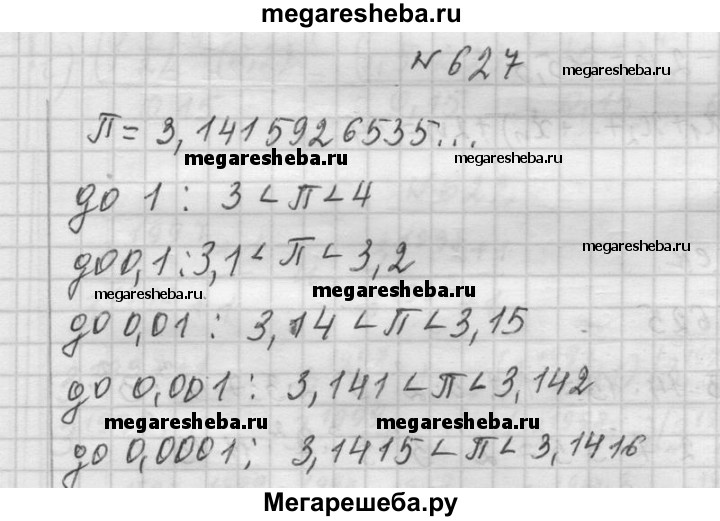 megaresheba.ru
№ 627
megaresheba.ru
π = 3,1415926535...
megaresheba.ru
до 1 : 3 < π < 4
до 0,1 : 3,1 < π < 3,2
megaresheba.ru
megaresheba.ru
megaresheba.ru
до 0,01 : 3,14 < π < 3,15
до 0,001 : 3,141 < π < 3,142
megaresheba.ru
megaresheba.ru
до 0,0001 : 3,1415 < π < 3,1416
Мегарешеба.ру